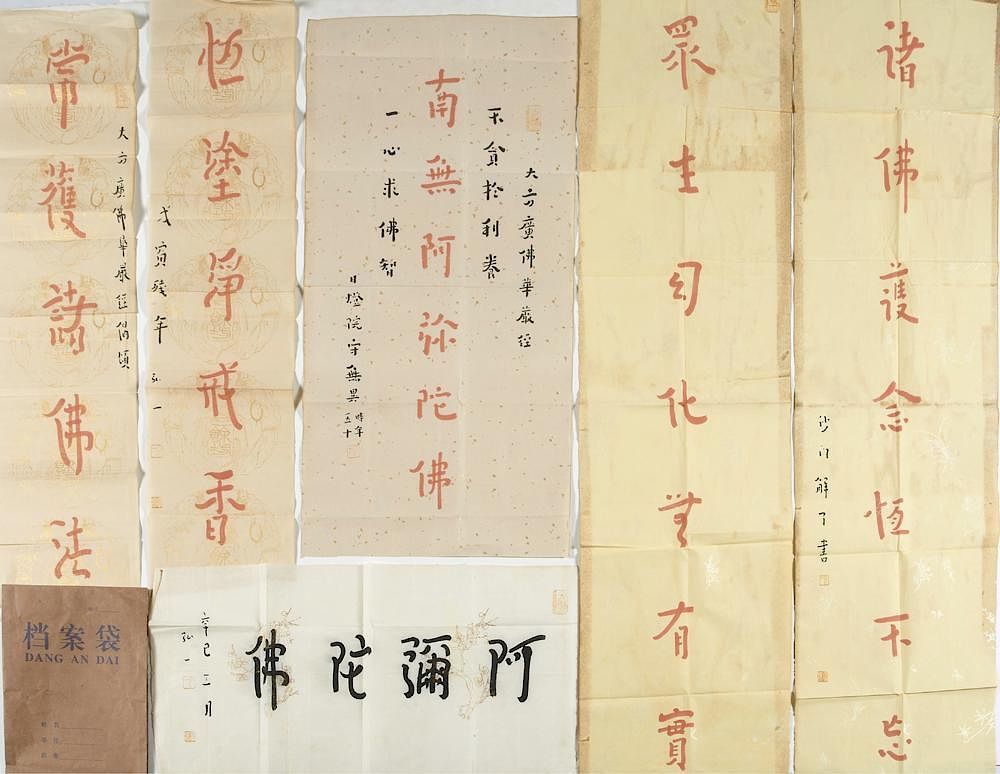 諸佛護念恆不忘
沙門解了書
眾生幻化無有實
大方廣佛華嚴經
不貪於利養
南無阿弥陀佛
一心求佛智
日燈院守無異
時年五十
恆塗淨戒香
戊寅殘年 弘一
大方廣佛華嚴經偈頌
常獲諸佛法
阿彌陀佛
辛巳三月
弘一
档案袋
DANG AN DAI